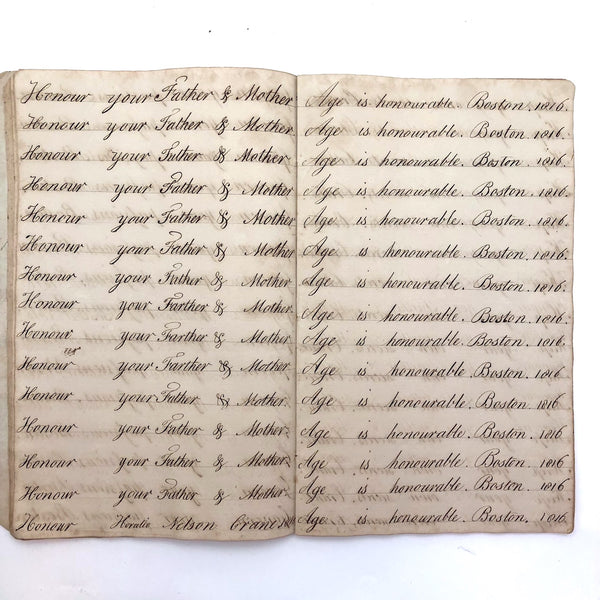 Honour your Father & Mother
Honour your Father & Mother
Honour your Futher & Mother
Honour your Father & Mother
Honour your Father & Mother
Honour your Father & Mother
Honour your Futher & Mother
Honour your Farther & Mother
Honour your Farther & Mother
Honour your Farther & Mother
Honour your Father & Mother.
Honour your Father & Mother.
Honour your Father & Mother.
Honour your Father & Mother.
Honour Horatio Nelson Crane
Age is honourable. Boston. 1816.
Age is honourable. Boston. 1816.
Age is honourable. Boston. 1816.
Age is honourable. Boston. 1816.
Age is honourable. Boston. 1816.
Age is honourable. Boston. 1816.
Age is honourable. Boston. 1816.
Age is honourable. Boston. 1816.
Age is honourable. Boston. 1816.
Age is honourable. Boston. 1816.
Age is honourable. Boston. 1816
Age is honourable. Boston. 1816.
Age is honourable. Boston. 1816
Age is honourable. Boston. 1816
Age is honourable. Boston. 1816.